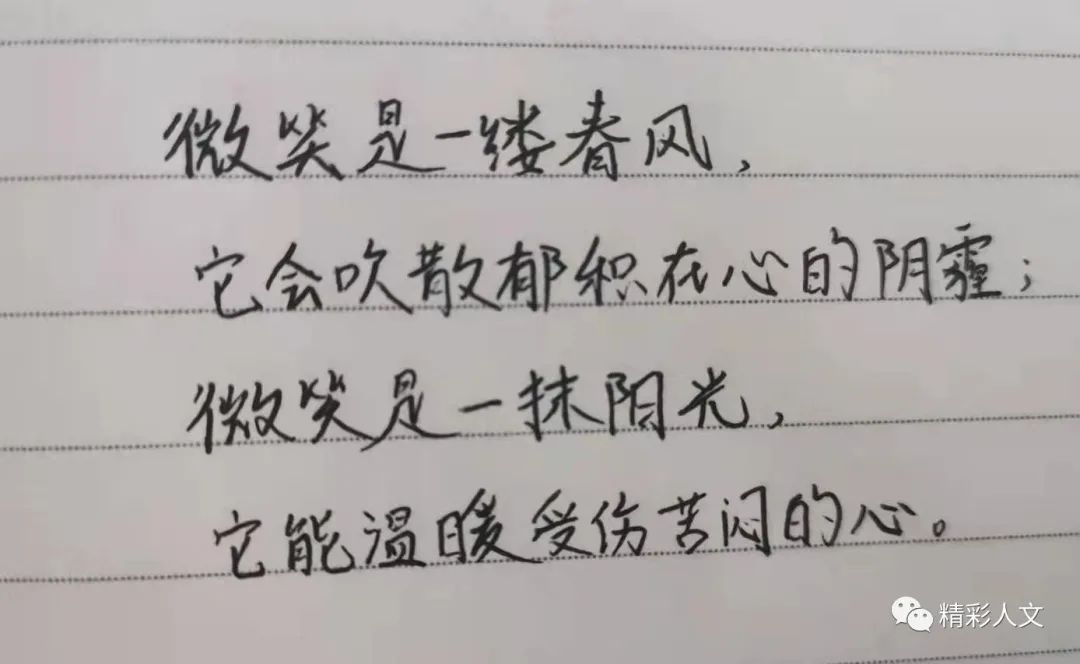 微笑是一缕春风，
它会吹散郁积在心的阴霾；
微笑是一抹阳光，
它能温暖受伤苦闷的心。
精彩人文